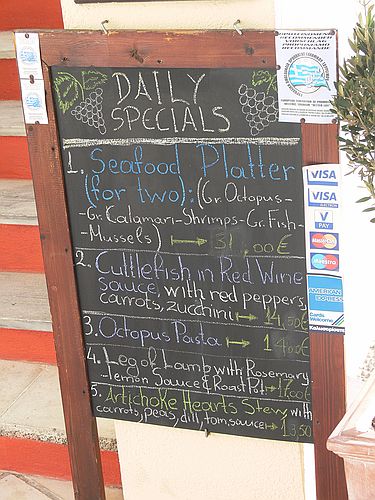 DAILY
SPECIALS
1. Seafood Platter
(for two): (Gr. Octopus-
-Gr. Calamari-Shrimps-Gr. Fish-
-Mussels) → 31,00€
2. Cuttlefish in Red Wine
sauce, with red peppers,
carrots, zucchini → 14,50€
3. Octopus Pasta → 14,00€
4. Leg of Lamb with Rosemary
-Lemon Sauce & Roast Pot. → 17,00€
5. Artichoke Hearts Stew, with
carrots, peas, dill, tom, sauce → 13,50
RECOMMENDER
VISA
VISA
VISA
ELECTRON
V PAY
MasterCard
Maestro
AMERICAN
EXPRESS
Cards
Welcome